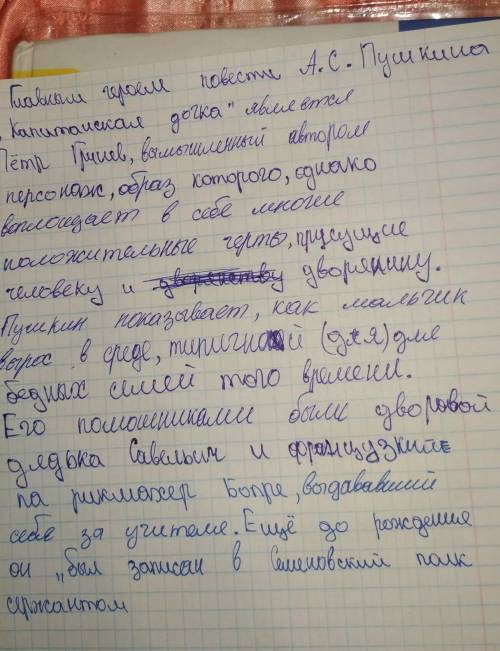 Главным героем повести А.С. Пушкина
„Капитанская дочка" является
Пётр Гринев, вымышленный автором
персонаж, образ которого, однако
воплощает в себе многие
положительные черты, присущие
человеку и дворянству дворянину.
Пушкин показывает, как мальчик
вырос в среде, типичной (для) для
бедных семей того времени.
Его помошниками были дворовой
дядька Савельич и французкий
па рикмахер Бопре, выдававший
себя за учителя. Ещё до рождения
он „был записан в Семеновский полк
сержантом